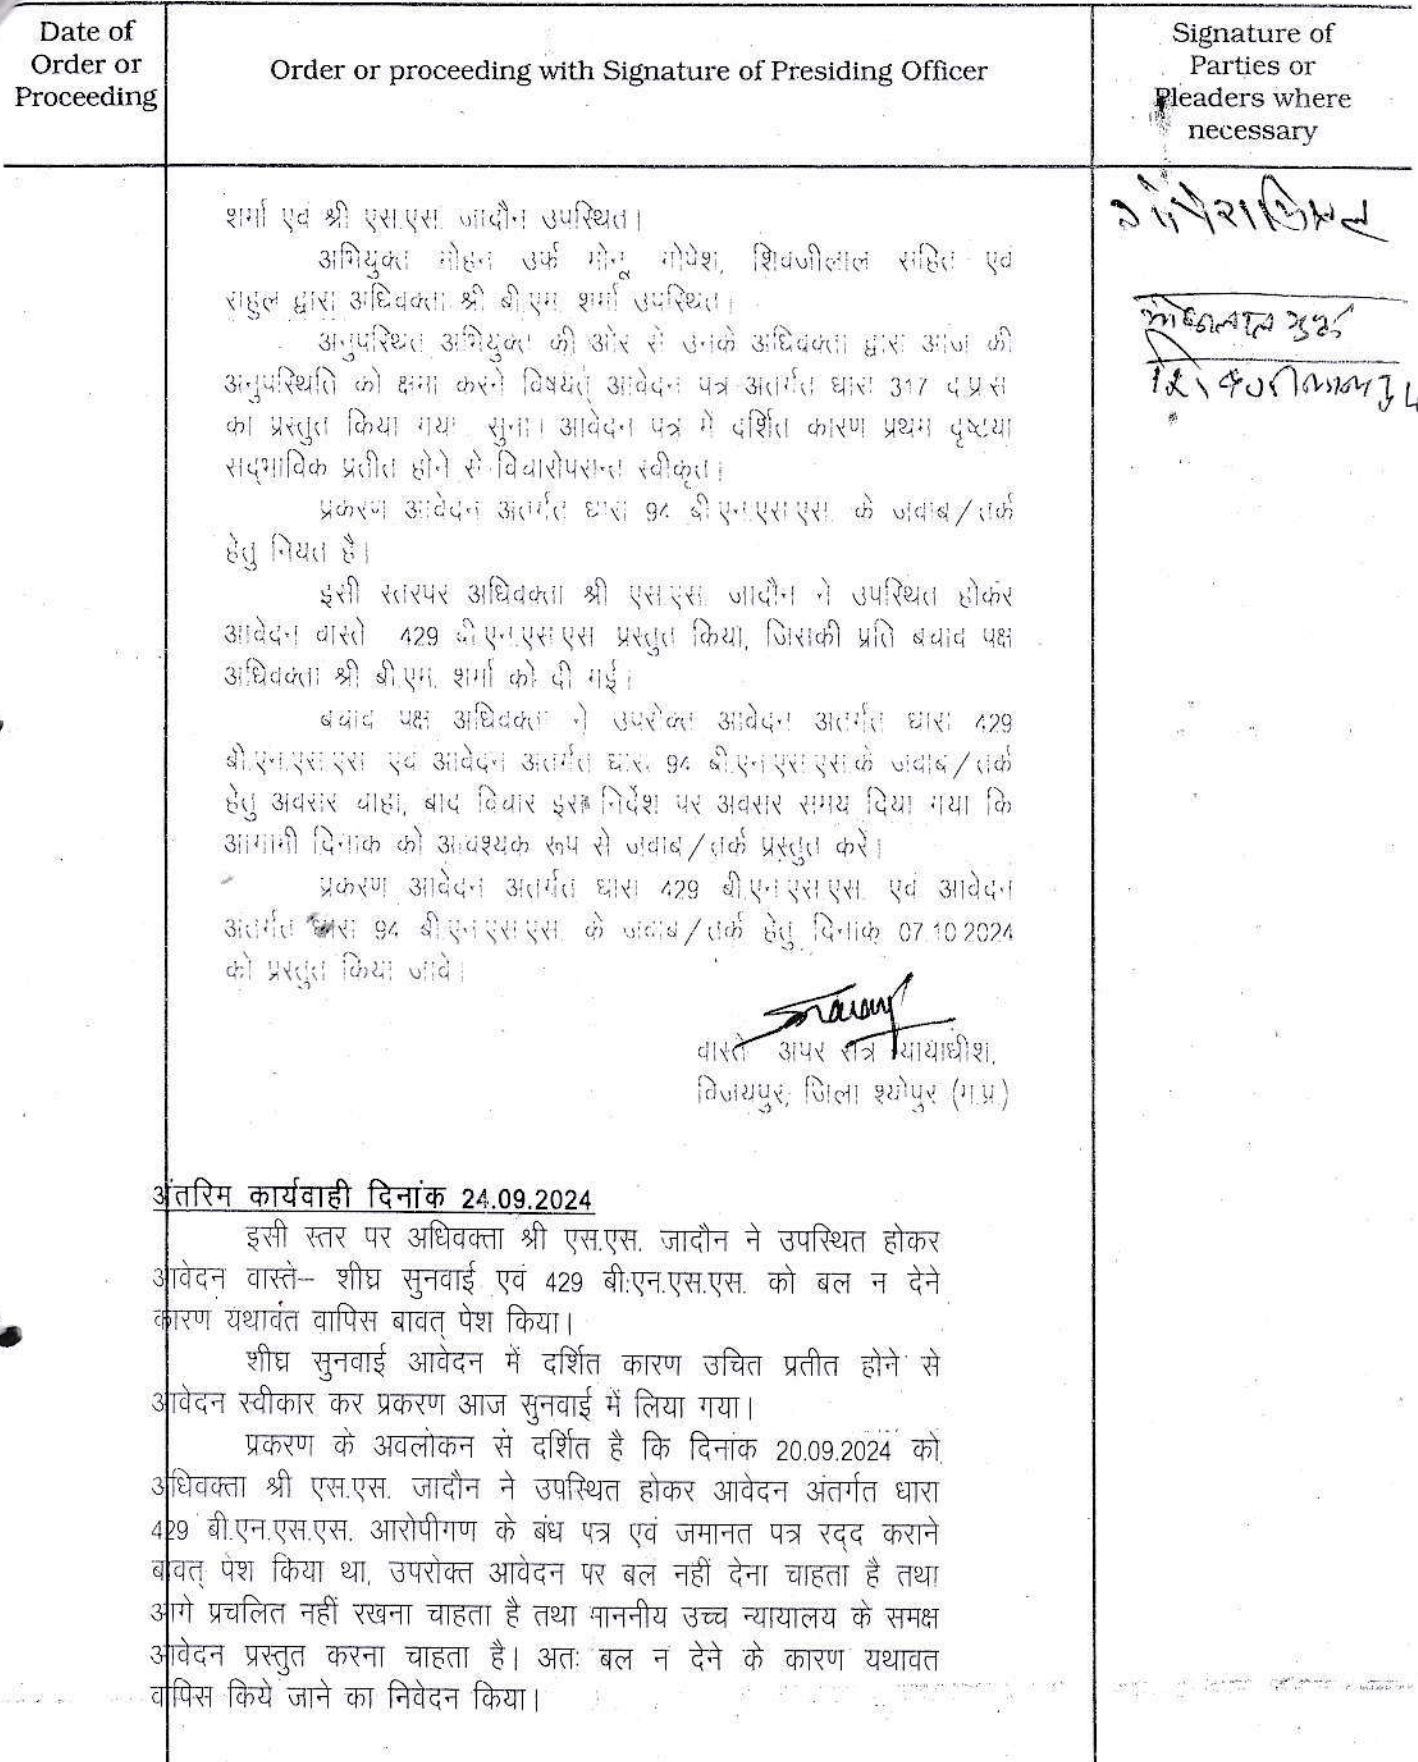 Date of
Order or
Proceeding
Order or proceeding with Signature of Presiding Officer
Signature of
Parties or
Pleaders where
necessary
शर्मा एवं श्री एस.एस. जादौन उपस्थित।
अभियुक्त मोहन उर्फ मोनू गोपेश, शिवजीलाल सहित एवं
राहुल द्वारा अधिवक्ता श्री बी.एम. शर्मा उपस्थित।
अनुपस्थित अभियुक्त की ओर से उनके अधिवक्ता द्वारा आज की
अनुपस्थिति को क्षमा करने विषयत् आवेदन पत्र अंतर्गत धारा 317 द.प्र.स
का प्रस्तुत किया गया सुना। आवेदन पत्र में दर्शित कारण प्रथम दृष्टया
सद्भाविक प्रतीत होने से विचारोपरान्त स्वीकृत।
प्रकरण आवेदन अंतर्गत धारा 94 बी.एन.एस.एस. के जवाब/तर्क
हेतु नियत है।
इसी स्तरपर अधिवक्ता श्री एस.एस. जादौन ने उपस्थित होकर
आवेदन वास्ते 429 बी.एन.एस.एस प्रस्तुत किया, जिसकी प्रति बचाव पक्ष
अधिवक्ता श्री बी.एम. शर्मा को दी गई।
बचाव पक्ष अधिवक्ता ने उपरोक्त आवेदन अंतर्गत धारा 429
बी.एन.एस.एस. एवं आवेदन अंतर्गत धारा 94 बी.एन.एस.एस.के जवाब/तर्क
हेतु अवसर चाहा, बाद विचार इस निर्देश पर अवसर समय दिया गया कि
आगामी दिनांक को आवश्यक रूप से जवाब/तर्क प्रस्तुत करें।
प्रकरण आवेदन अंतर्गत धारा 429 बी.एन.एस.एस. एवं आवेदन
अंतर्गत धारा 94 बी.एन.एस.एस. के जवाब/तर्क हेतु दिनांक 07.10.2024
को प्रस्तुत किया जावे।
वास्ते अपर सत्र न्यायाधीश,
विजयपुर, जिला श्योपुर (म.प्र.)
अंतरिम कार्यवाही दिनांक 24.09.2024
इसी स्तर पर अधिवक्ता श्री एस.एस. जादौन ने उपस्थित होकर
आवेदन वास्ते– शीघ्र सुनवाई एवं 429 बी.एन.एस.एस. को बल न देने
कारण यथावत वापिस बावत् पेश किया।
शीघ्र सुनवाई आवेदन में दर्शित कारण उचित प्रतीत होने से
आवेदन स्वीकार कर प्रकरण आज सुनवाई में लिया गया।
प्रकरण के अवलोकन से दर्शित है कि दिनांक 20.09.2024 को
अधिवक्ता श्री एस.एस. जादौन ने उपस्थित होकर आवेदन अंतर्गत धारा
429 बी.एन.एस.एस. आरोपीगण के बंध पत्र एवं जमानत पत्र रद्द कराने
बावत् पेश किया था, उपरोक्त आवेदन पर बल नहीं देना चाहता है तथा
आगे प्रचलित नहीं रखना चाहता है तथा माननीय उच्च न्यायालय के समक्ष
आवेदन प्रस्तुत करना चाहता है। अतः बल न देने के कारण यथावत
वापिस किये जाने का निवेदन किया।